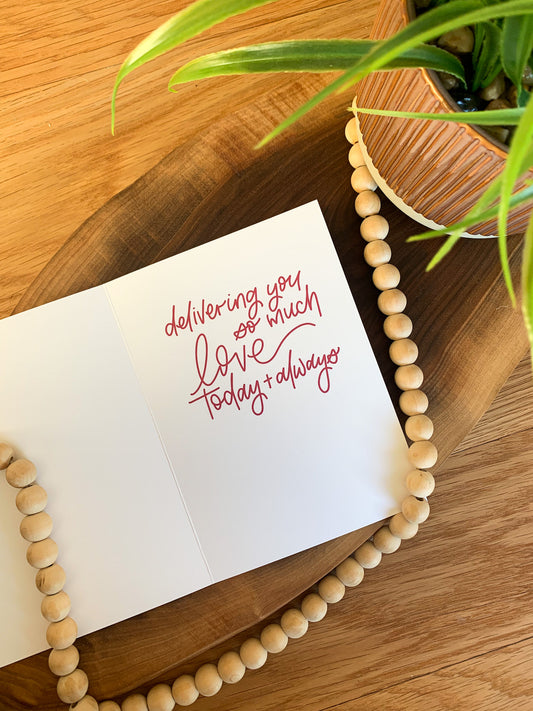 delivering you
so much
love
today + always